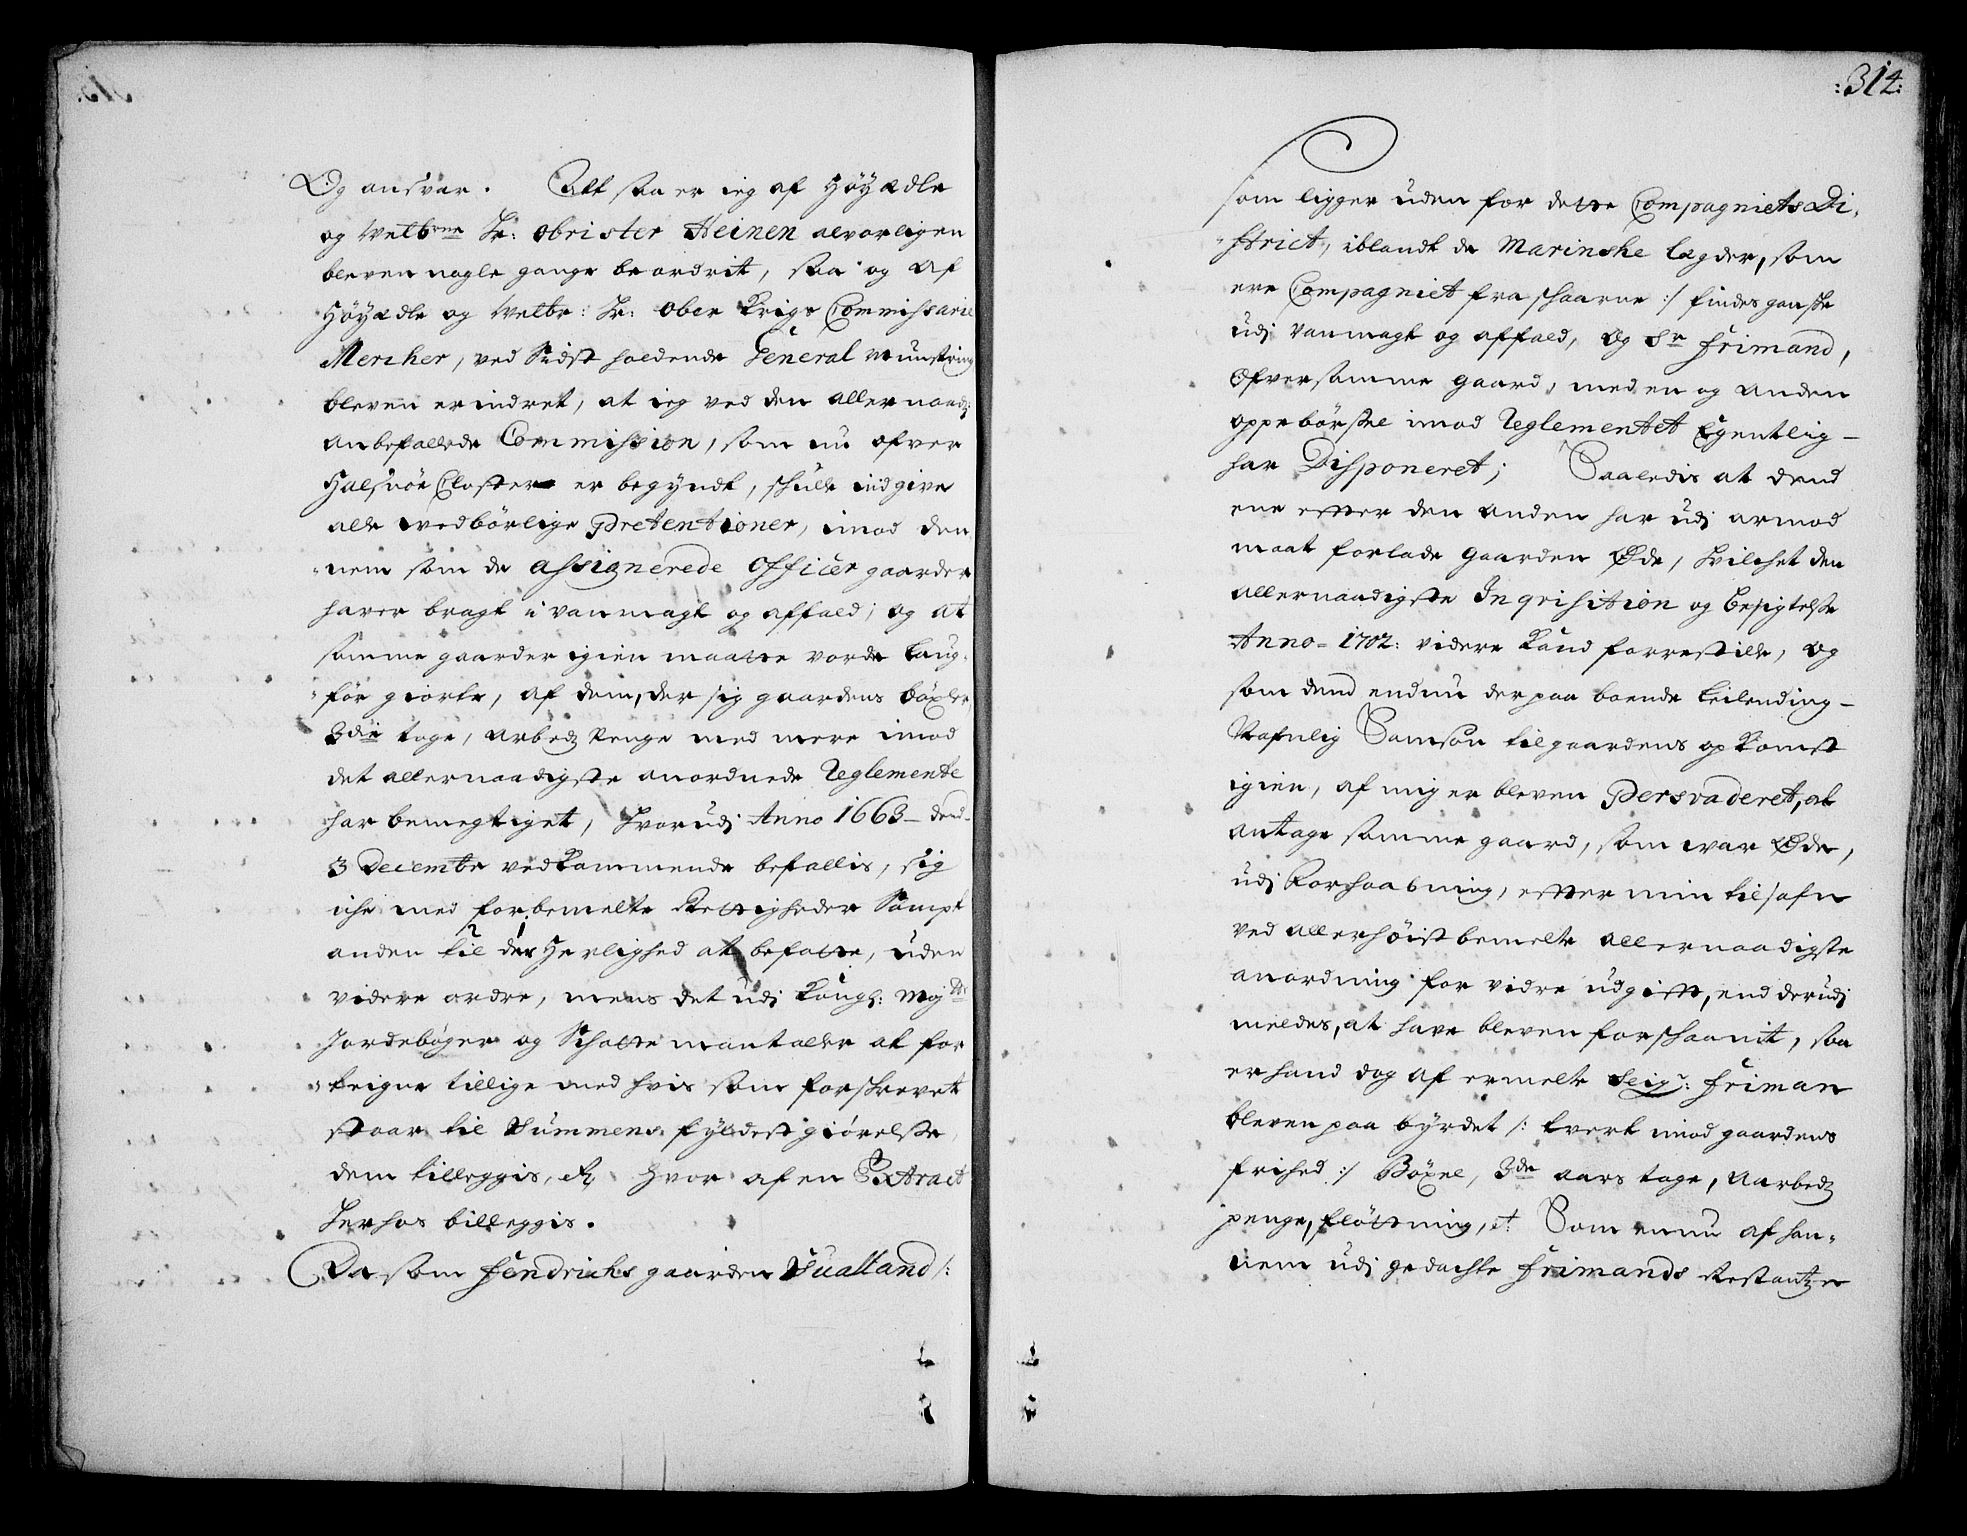 Og ansvar. Alt saa er ieg af Høyædle
og Velbrne Hr: obrister Heinen alvorligen
bleven nogle gange beordrit, saa og af
Høyædle og Velbr: Hr: ober Krigs Commissarie
Mercher, ved Sidst holdende General munstring
bleven erindret, at ieg ved den allernaadg:
anbefallede Commission, som nu ofver
Halsnöe Closter er begyndt, skulle indgive
alle vedbörlige Pretentioner, imod den
nem som de assignerede officer gaarder
haver bragt i vanmagt og affald; og at
samme gaarder igien maatte vorde laug-
för giorte, af dem, der sig gaardens böxler,
3die tage, arbedz penge med mere imod
det allernaadigste anordnede Reglemente
har bemegtiget, hvorudj Anno 1663 - dend
3 Decembr vedkommende befallis, sig
iche med forbemelte Rettigheder Sampt
anden til der Herlighed at befatte, uden
videre ordre, mens det udj Kongl: Maj:ts
Jordebøger og Schatte mantaller at for
teigne tillige med hvis som forskrevet
staar til Summens fyldest giörelsse
dem tilleggis, etc Hvor af en Extract
herhos billeggis.
Da som Fendrichs gaarden Sualland /:
:314:
som ligger uden for dette Compagniets Di-
strict, iblandt de Marinske lægder, som
ere Compagniet fra skaarne :/ findes ganske
udj vanmagt og affald, og Sr Frimand,
ofver samme gaard, med en og anden
oppebörsel imod Reglementet Egentlig -
har Disponeret; Saaledis at dend
ene efter den anden har udj armod
maat forlade gaarden Øde, hvilchet den
allernaadigste Inqvisition og besigtelse
Anno = 1702: videre kand forrestille, og
som dend endnu der paa boende leilending -
Nafnlig Samson til gaardens opkomst
igien, af mig er bleven Persvaderet, at
antage samme gaard, som war Øde,
udj Forhaabning, efter min tilsafn
ved allerhöist bemelte allernaadigste
anordning for vidre udgift, end derudj
meldes, at have bleven forskaanit, saa
er hand dog af ermelte Seigr: Friman
bleven paa byrdet /: tvert imod gaardens
frihed :/ Böxel, 3de aars tage, Aarbedz
penge, flötning, et: Som ennu af han-
nem udj gedachte Frimands Restantzer